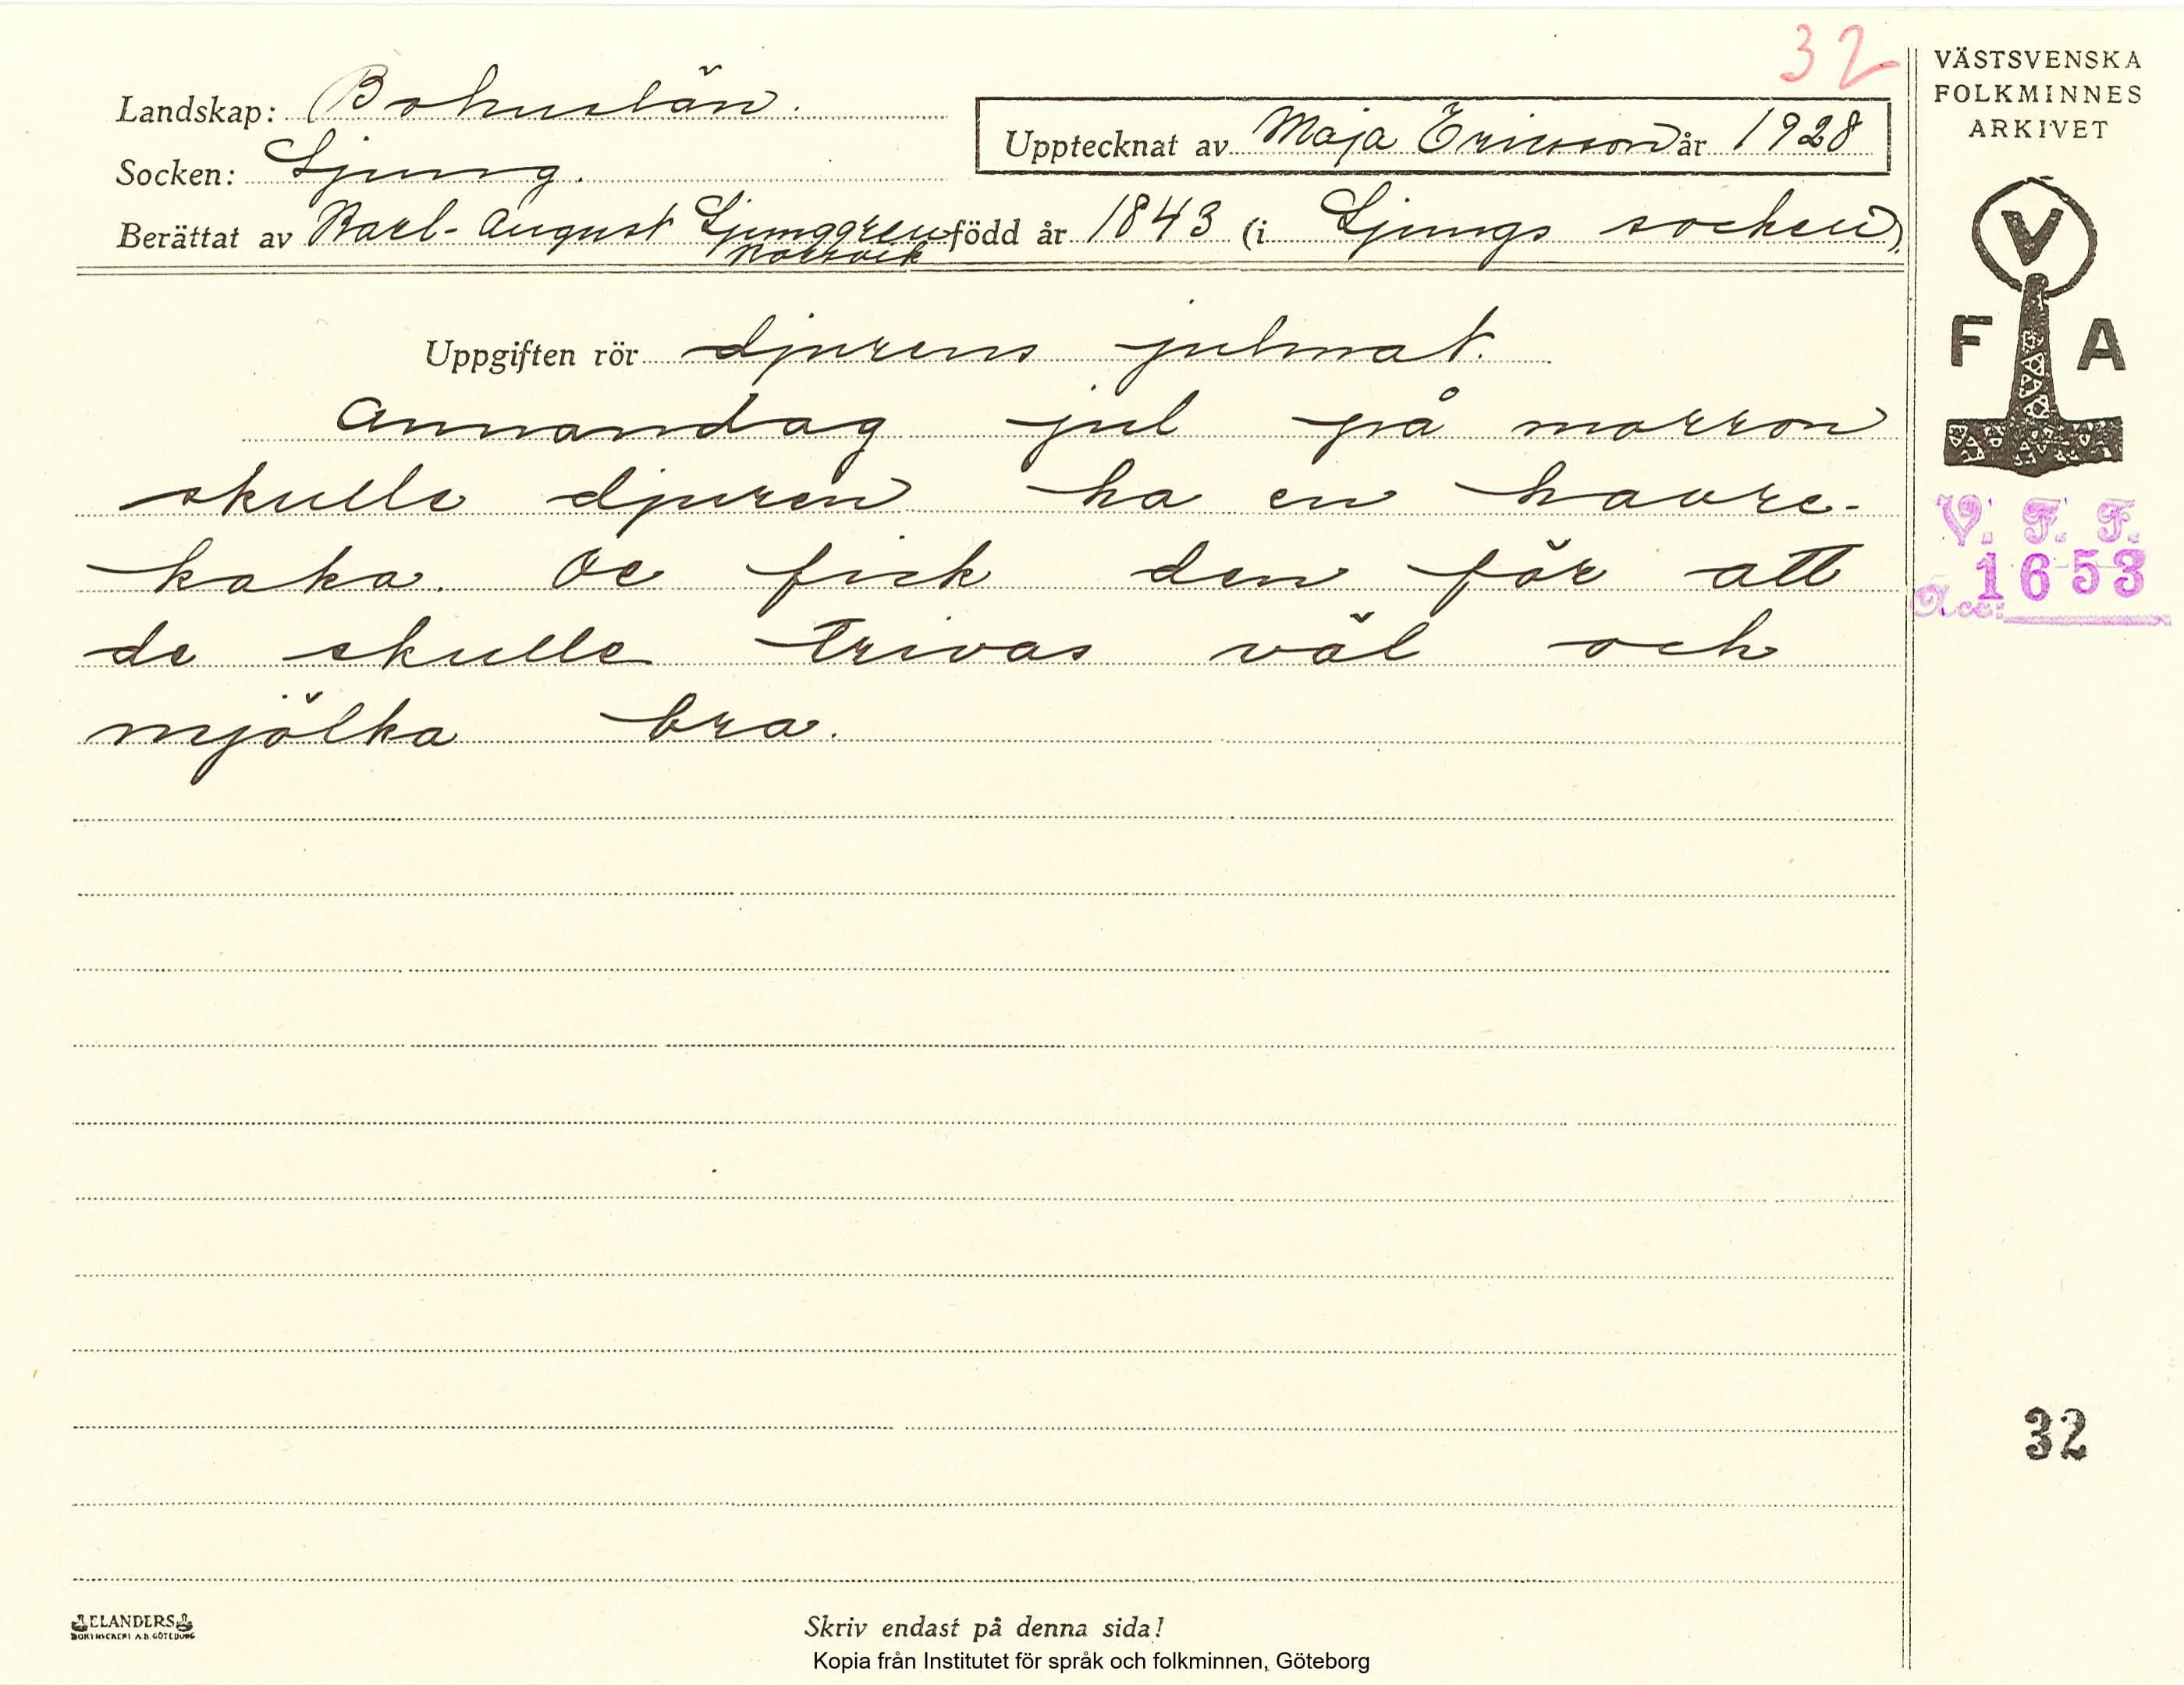 32
Landskap: Bohuslän.
Socken: Ljung.
Upptecknat av Maja Ericsson år 1928
Berättat av Karl-August Ljunggren född år 1843 (i Ljungs socken).
Uppgiften rör djurens julmat.
Annandag jul på morron
skulle djuren ha en havre-
kaka. De fick den för att
de skulle trivas väl och
mjölka bra.
VÄSTSVENSKA
FOLKMINNES
ARKIVET
V
F A
V. F. F.
1653
Acc:
32
ELANDERS
BOKTRYCKERI A.B. GÖTEBORG
Skriv endast på denna sida!
Kopia från Institutet för språk och folkminnen, Göteborg